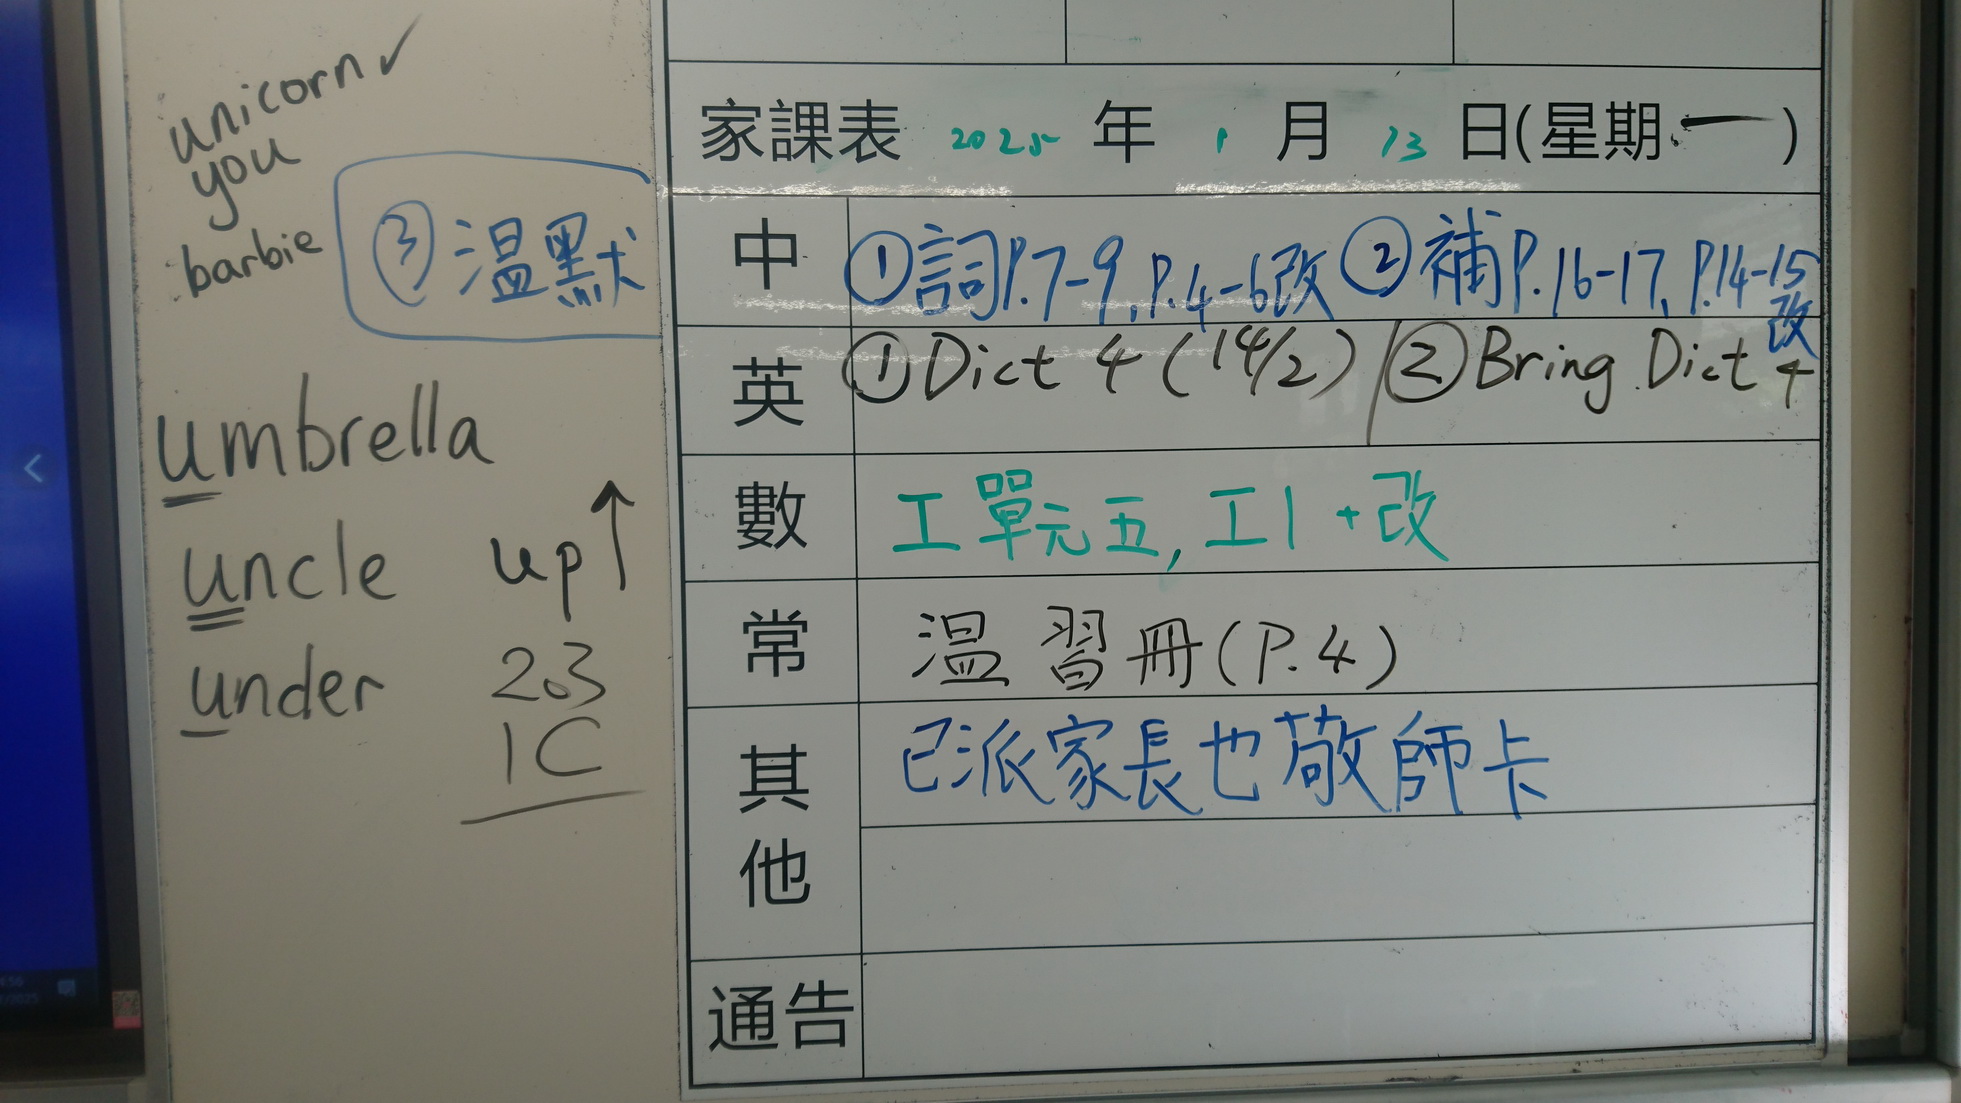 unicorn ✓
you
barbie
③溫默
umbrella
uncle
up↑
under
203
1C
家課表 2025 年 1 月 13 日(星期一)
中 ①詞P.7-9, P.4-6改 ②補P.16-17, P.14-15改
英 ①Dict 4 (14/2) / ②Bring Dict 4
數 工單元五, 工1+改
常 溫習冊(P.4)
其他 已派家長也敬師卡
通告